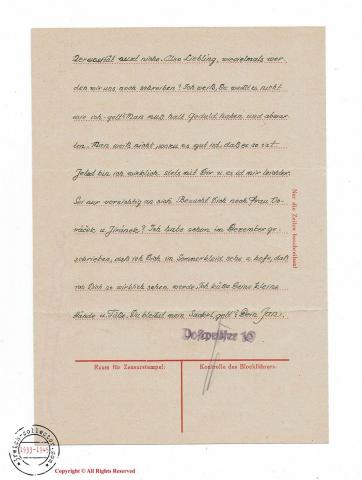 nicht. Also Liebling, wer
den wir uns noch schreiben? Ich weiß, Du weißt es nicht
wie ich - gelt? Man muß halt Geduld haben und abwar
ten. Man weiß nicht, wozu es gut ist, daß es so ist.
Jetzt bin ich wirklich stets mit Dir u. es ist mir leichter.
Sei nur vorsichtig Besucht Dich noch Frau Vo-
ráček u. Jiránek? Ich habe schon im Dezember ge
schrieben, daß ich Dich im Sommerkleid sehe u. hoffe, daß
ich Dich so wirklich sehen werde. Ich küsse Deine kleine
Hände u. Füße. Du bleibst mein gelt? Dein Jan.
Nur die Zeilen beschreiben!
Raum für Zensurstempel:
Kontrolle des Blockführers:
reich-collector.com
1933-1945
Copyright © All Rights Reserved